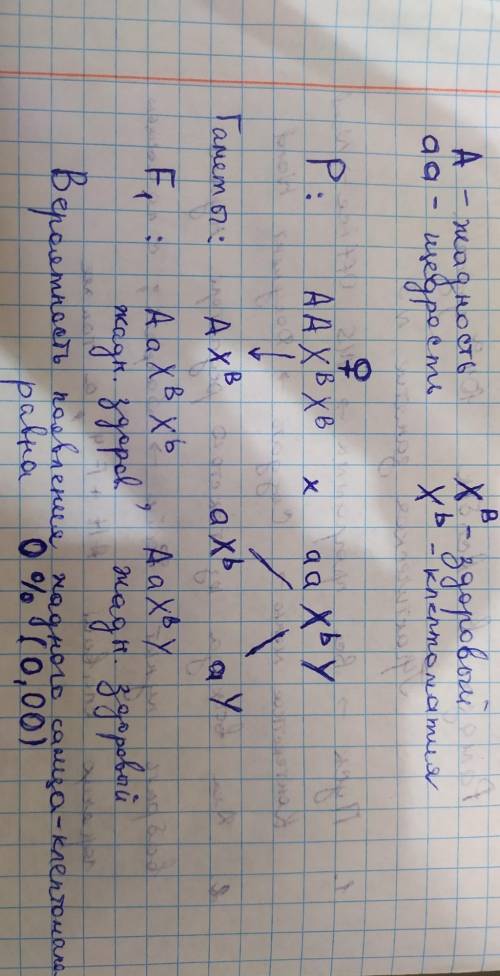 А - жадность X^B - здоровый
аа - щедрость X^b - клептомания
♀
P: AAX^BX^B x aaX^bY
Гаметы: AX^B aX^b aY
F₁: AaX^BX^b, AaX^BY
жадн. здоров жадн. здоровый
Вероятность появления жадного самца-клептомана
равна 0% (0,00)